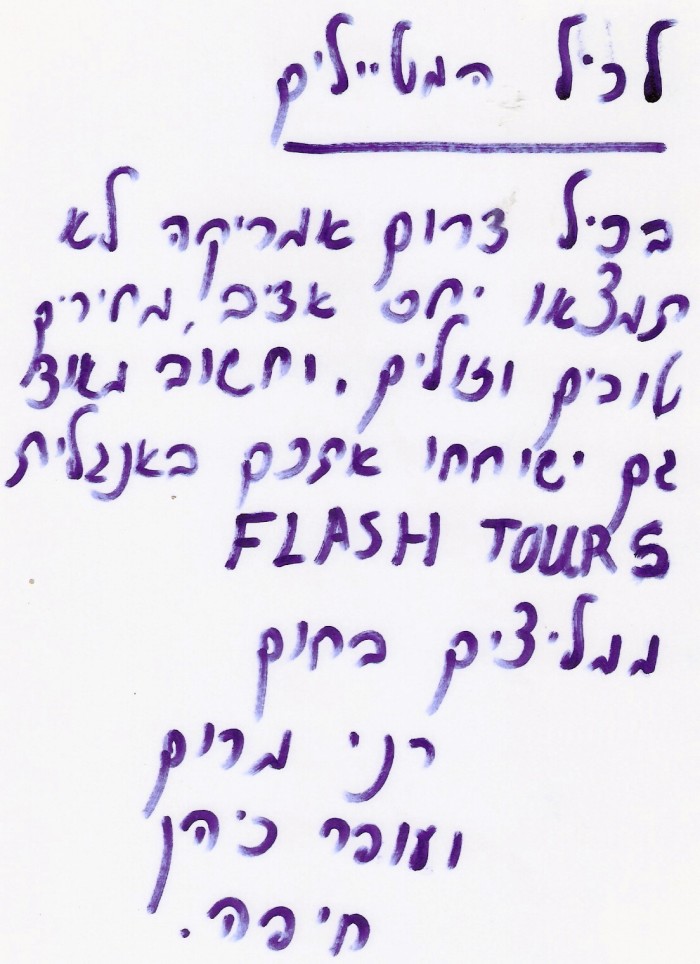 לכיל המטיילים
בכיל דרום אמריקה לא
תמצאו יחס אדיב, מחירים
טובים וזולים. וחשוב מאוד
גם ישוחחו אתכם באנגלית
FLASH TOURS
ממליצים בחום
רני מרום
ועופר כהן
חיפה.